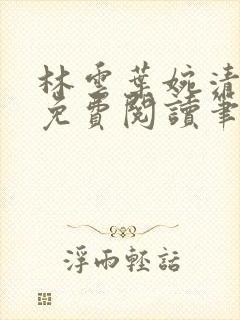 林雲葉婉清
免費閱讀筆
浮雨輕話